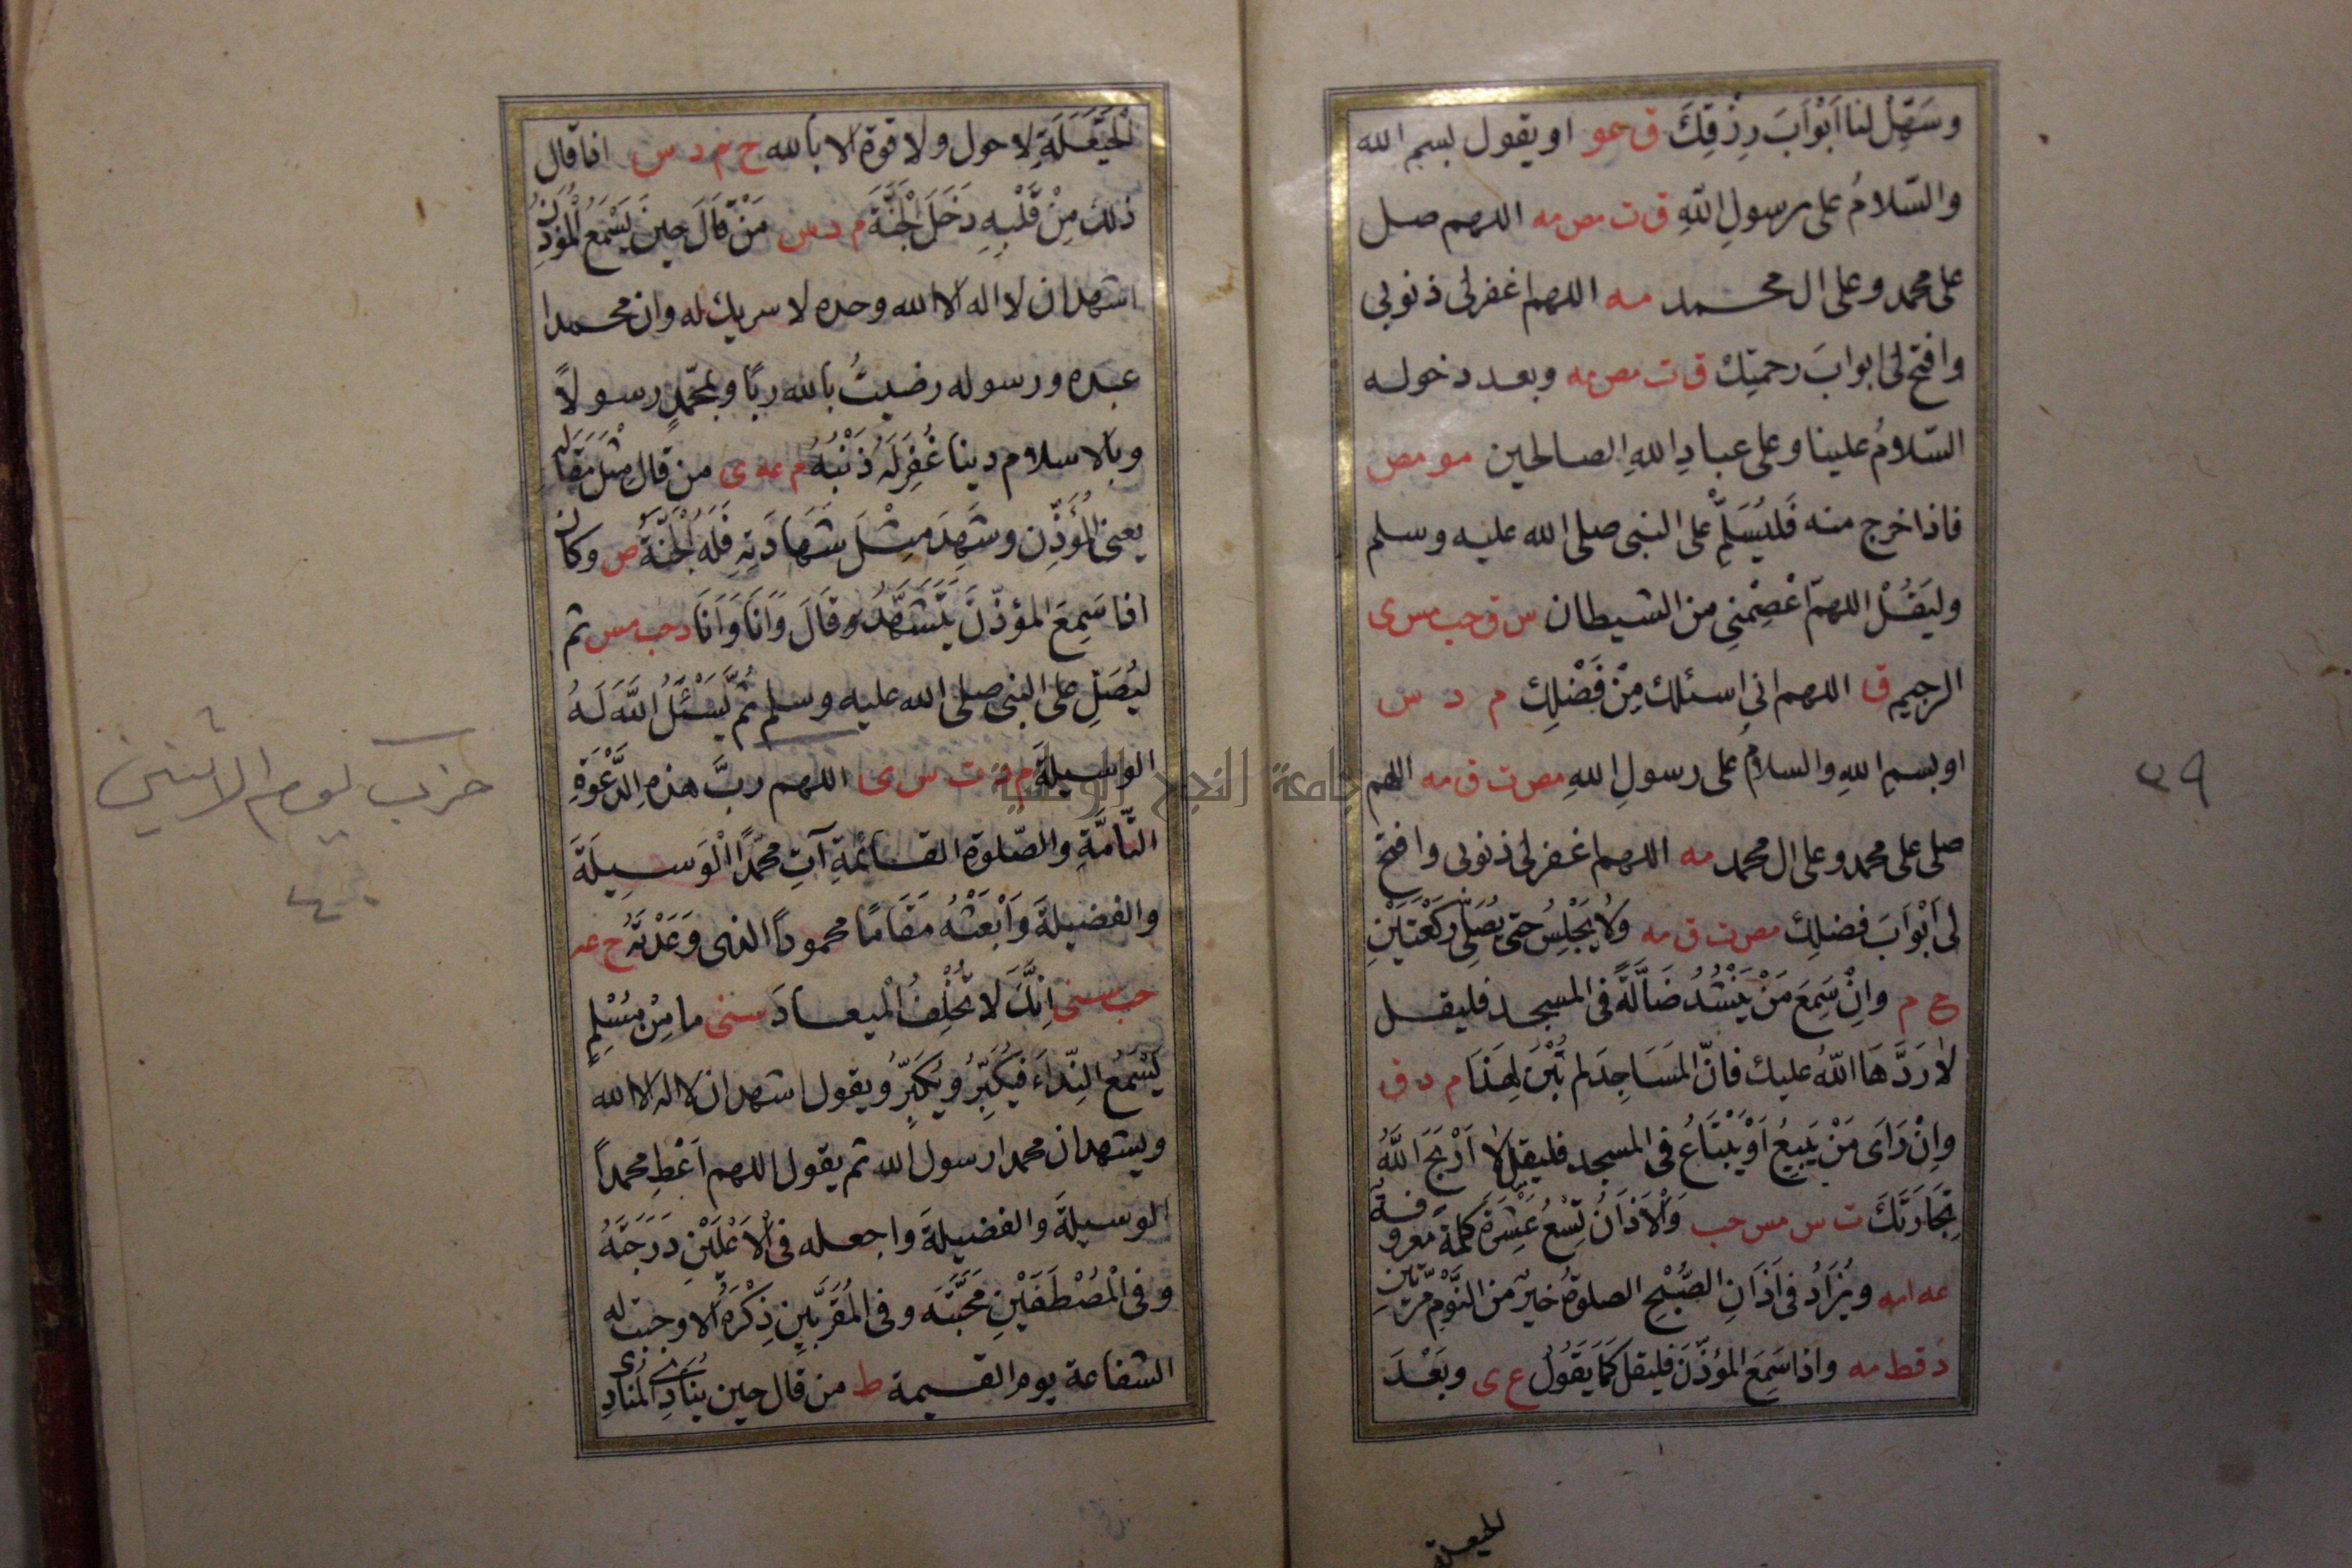 وسَهِّلْ لنا اَبْوَابَ رِزْقِكَ ق عو او يقول بسم الله
والسّلامُ على رسولِ اللّٰهِ ق ت مص مه اللهم صل
على محمد وعلى ال محمد مه اللهم اغفر لى ذنوبى
وافتح لى ابوابَ رحمتِك ق ت مص مه وبعد دخوله
السّلامُ علينا وعلى عبادِ اللهِ الصالحين مو مص
فاذا خرج منه فَليُسَلِّمْ على النبى صلى الله عليه وسلم
وليَقُلْ اللهمّ اعْصِمْنِى من الشيطان س ق حب مس ى
الرجيم ق اللهم انى اسئلك مِنْ فَضْلِك م د س
او بسمِ اللهِ والسلامُ على رسولِ اللهِ مص ت ق مه اللهم
صلى على محمد وعلى ال محمد مه اللهم اغفر لى ذنوبى وافتح
لى اَبْوَابَ فضلِك مص ت ق مه وَلا يَجْلِسُ حتى يُصَلِّىَ رَكْعَتَيْنِ
خ م واِنْ سَمِعَ مَنْ يَنْشُدُ ضَالَّةً فى المسجد فليقل
لا رَدَّهَا اللّٰهُ عليك فانّ المَسَاجِدَ لم تُبْنَ لِهَذَا م د ق
واِنْ رَاَى مَنْ يَبِيعُ اَوْ يَبْتَاعُ فى المسجد فليقل لا اَرْبَحَ اللّٰهُ
تِجَارَتَكَ ت س مس حب وَالْاَذَانُ تِسْعُ عَشْرَةَ كلمة معروفة
عه امه ويُزَادُ فى اَذَانِ الصُّبْحِ الصلوةُ خيرٌ من النَّوْمِ مرّتين
د قط مه واذا سَمِعَ المؤذّنَ فليقل كَمَا يَقُولُ ع ى وبَعْدَ
للحيعلة
٣٩
الْحَيْعَلَةِ لا حول ولا قوة الا بالله خ م د س اذا قال
ذلك مِنْ قَلْبِهِ دَخَلَ الْجَنَّةَ م د س مَنْ قَالَ حِينَ يَسْمَعُ الْمُؤَذِّنُ
اشهد ان لا اله الا الله وحده لا سريك له وان محمدا
عبده ورسوله رضيتُ بالله ربًا وبمحمّدٍ رسولاً
وبالاسلام دينا غُفِرَ لَهُ ذَنْبُهُ م عه ى من قال مِثْلَ مَقَالِهِ
يعنى المُؤَذِّنَ وشَهِدَ مِثْلَ شَهَادَتِهِ فَلَهُ الْجَنَّةُ ص وكان
اذا سَمِعَ المؤذّنَ يَتَشَهَّدُ وقَالَ وَاَنَا وَاَنَا د حب مس ثم
ليُصَلِّ على النبى صلى الله عليه وسلم ثُمَّ يَسْئَلُ اللّٰهَ لَهُ
الوسيلةَ م د ت س ى اللهم ربَّ هذه الدَّعْوَةِ
التَّامَّةِ والصّلوة القائمةِ آتِ محمّدًا الْوَسِيلَةَ
والفضيلةَ وَابْعَثْهُ مَقَامًا محمودًا الذى وَعَدْتَهُ خ عه
حب سنى اِنَّكَ لَا تُخْلِفُ الْميعادَ سنى ما مِنْ مُسْلِمٍ
يَسْمَعُ النِّدَاءَ فَيُكَبِّرُ ويُكَبِّرُ ويقول اشهد ان لا اله الا الله
ويشهد ان محمدا رسول الله ثم يقول اللهم اَعْطِ محمداً
الوسيلةَ والفضيلةَ واجعله فى الْاَعْلَيْنَ دَرَجَتَهُ
وفى الْمُصْطَفَيْنَ مَحَبَّتَهُ وفى المُقَرَّبينِ ذِكْرَهُ الا وجبت له
الشفاعة يوم القيمة ط من قال حين يُنَادِى المُنَادِى
حزب يوم الاثنين
جامعة النجاح الوطنية